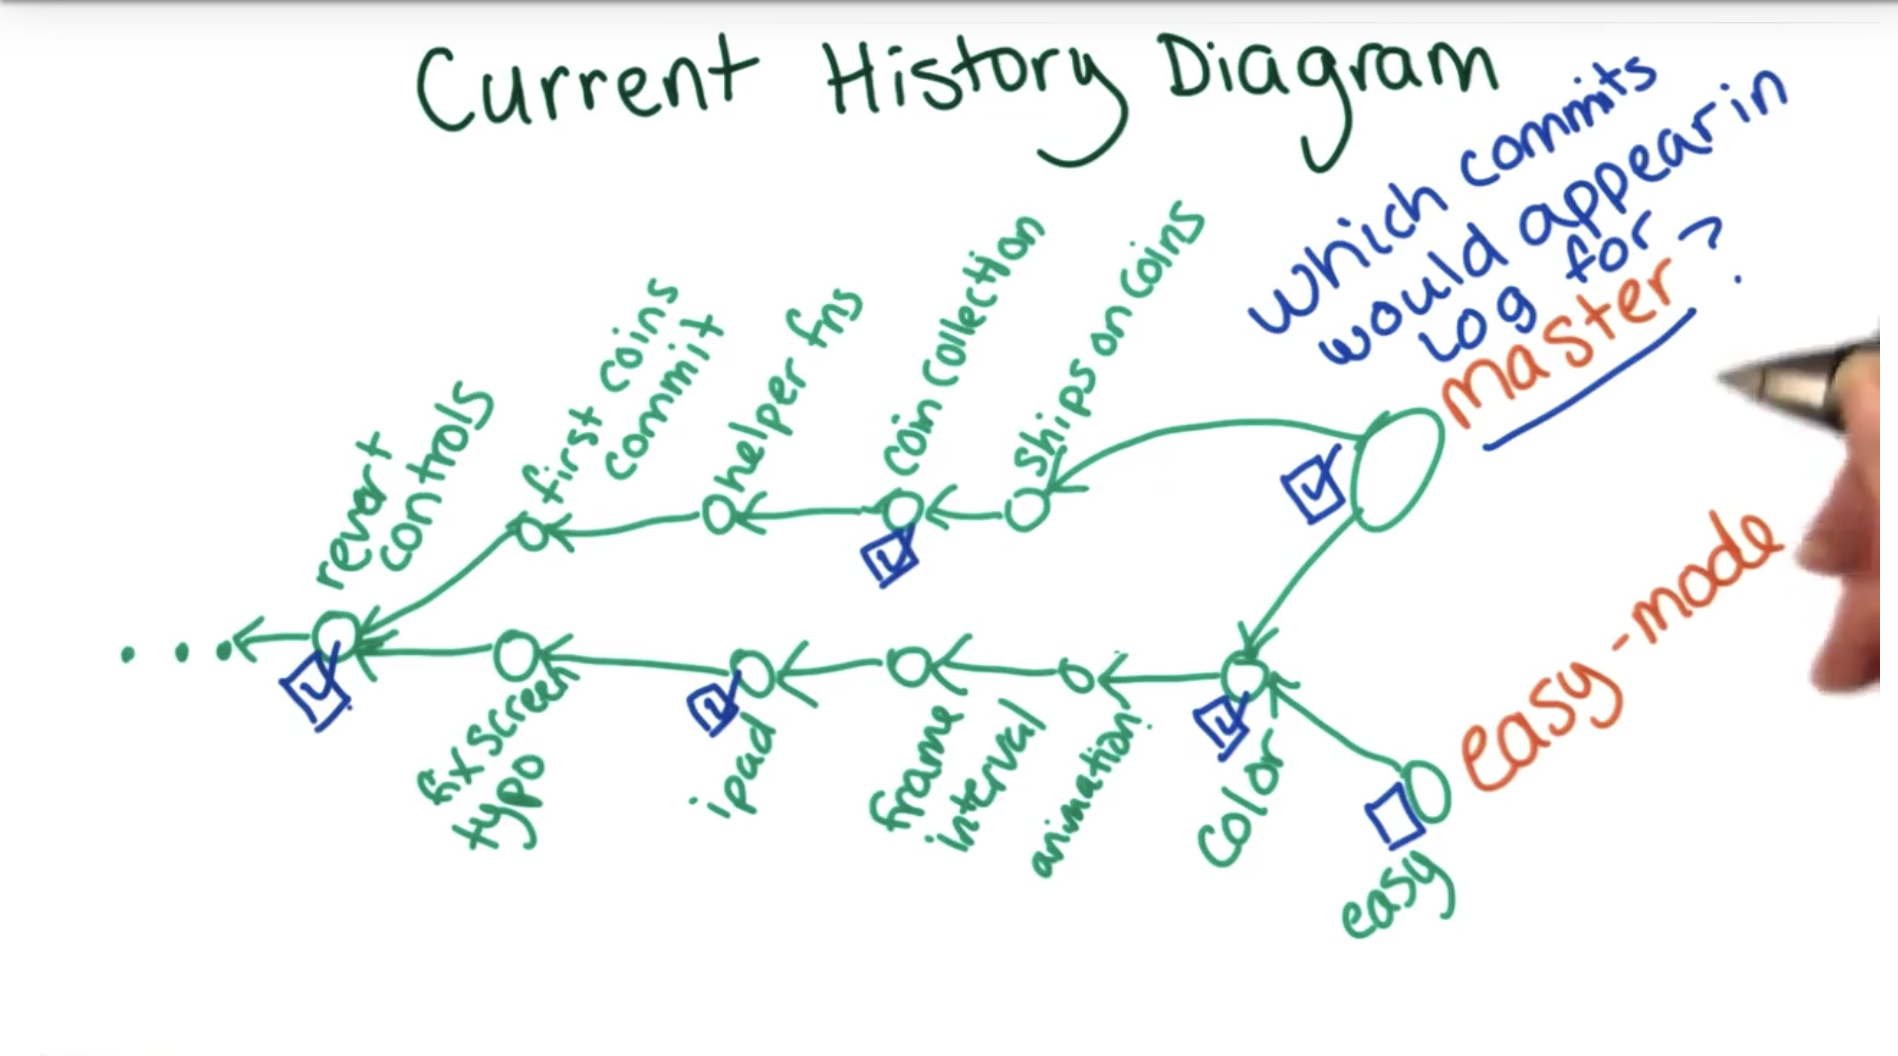 Current History Diagram
which commits
would appear in
log for
master?
revert
controls
first coins
commit
helper fns
coin collection
ships on coins
easy-mode
fix screen
typo
ipad
frame
interval
animation
color
easy